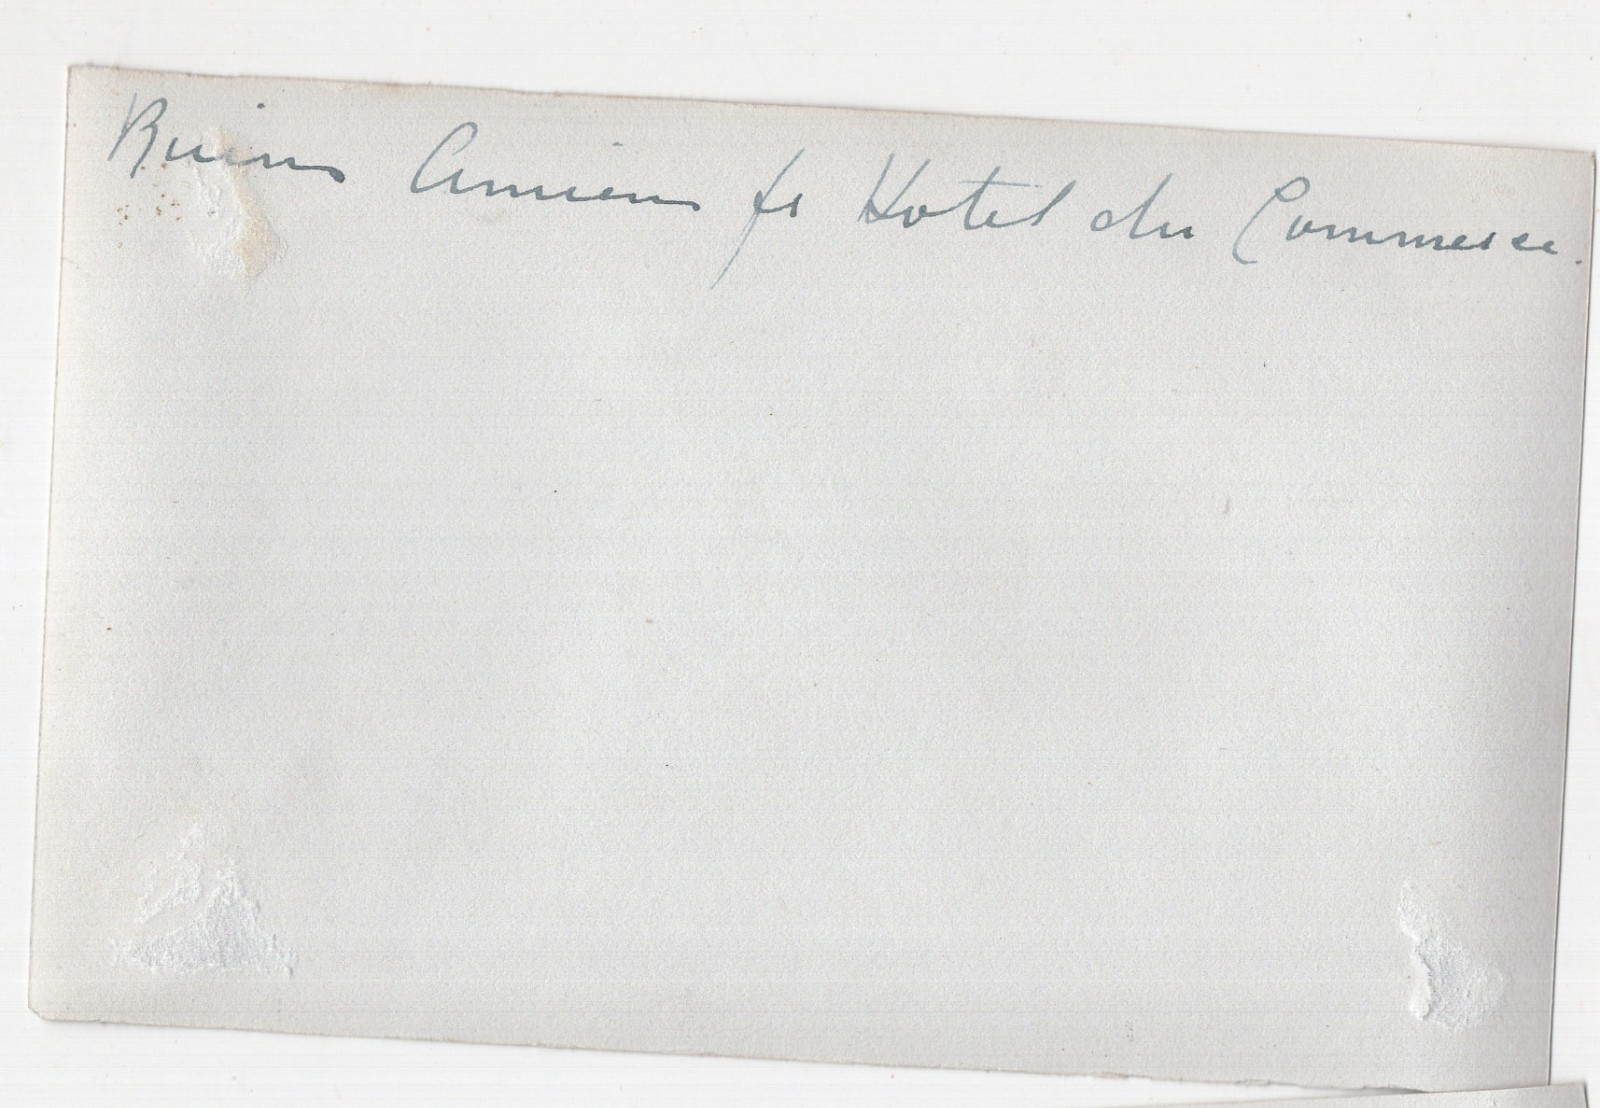 Ruins Amiens fr Hotel du Commerce.